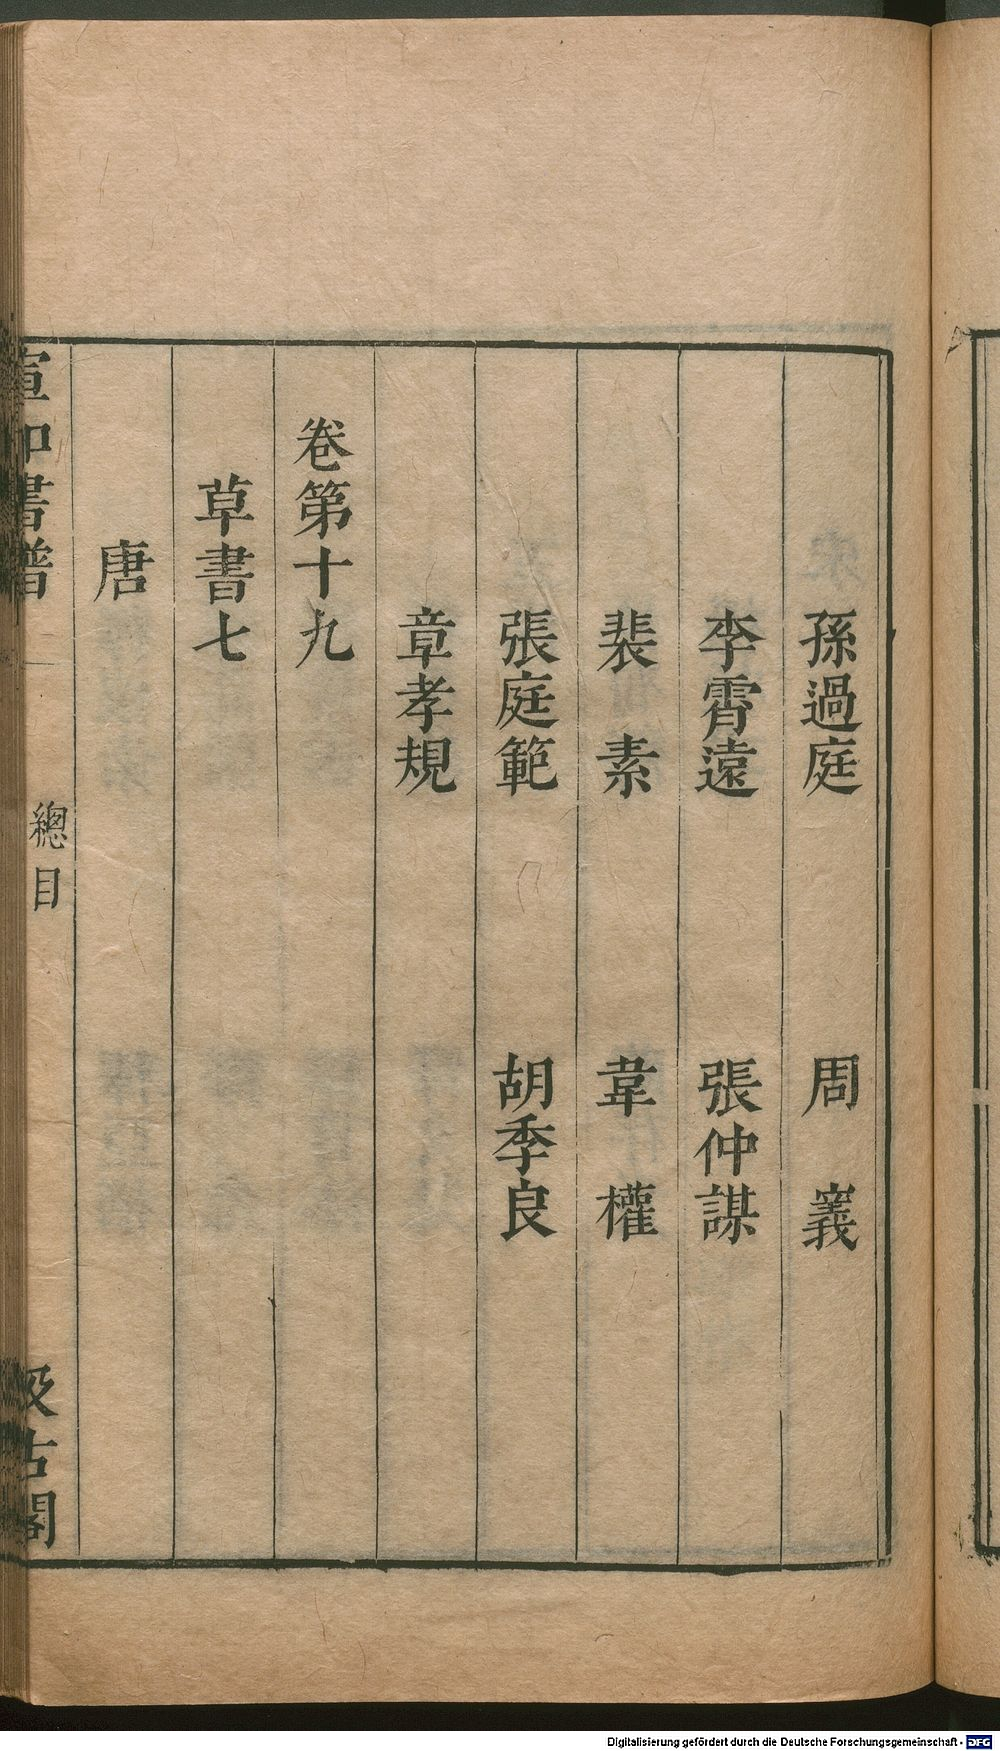 孫過庭 周㠖
李霄遠 張仲謀
裴素 韋權
張庭範 胡季良
章孝規
卷第十九
草書七
唐
宣和書譜 總目 汲古閣
Digitalisierung gefördert durch die Deutsche Forschungsgemeinschaft - DFG